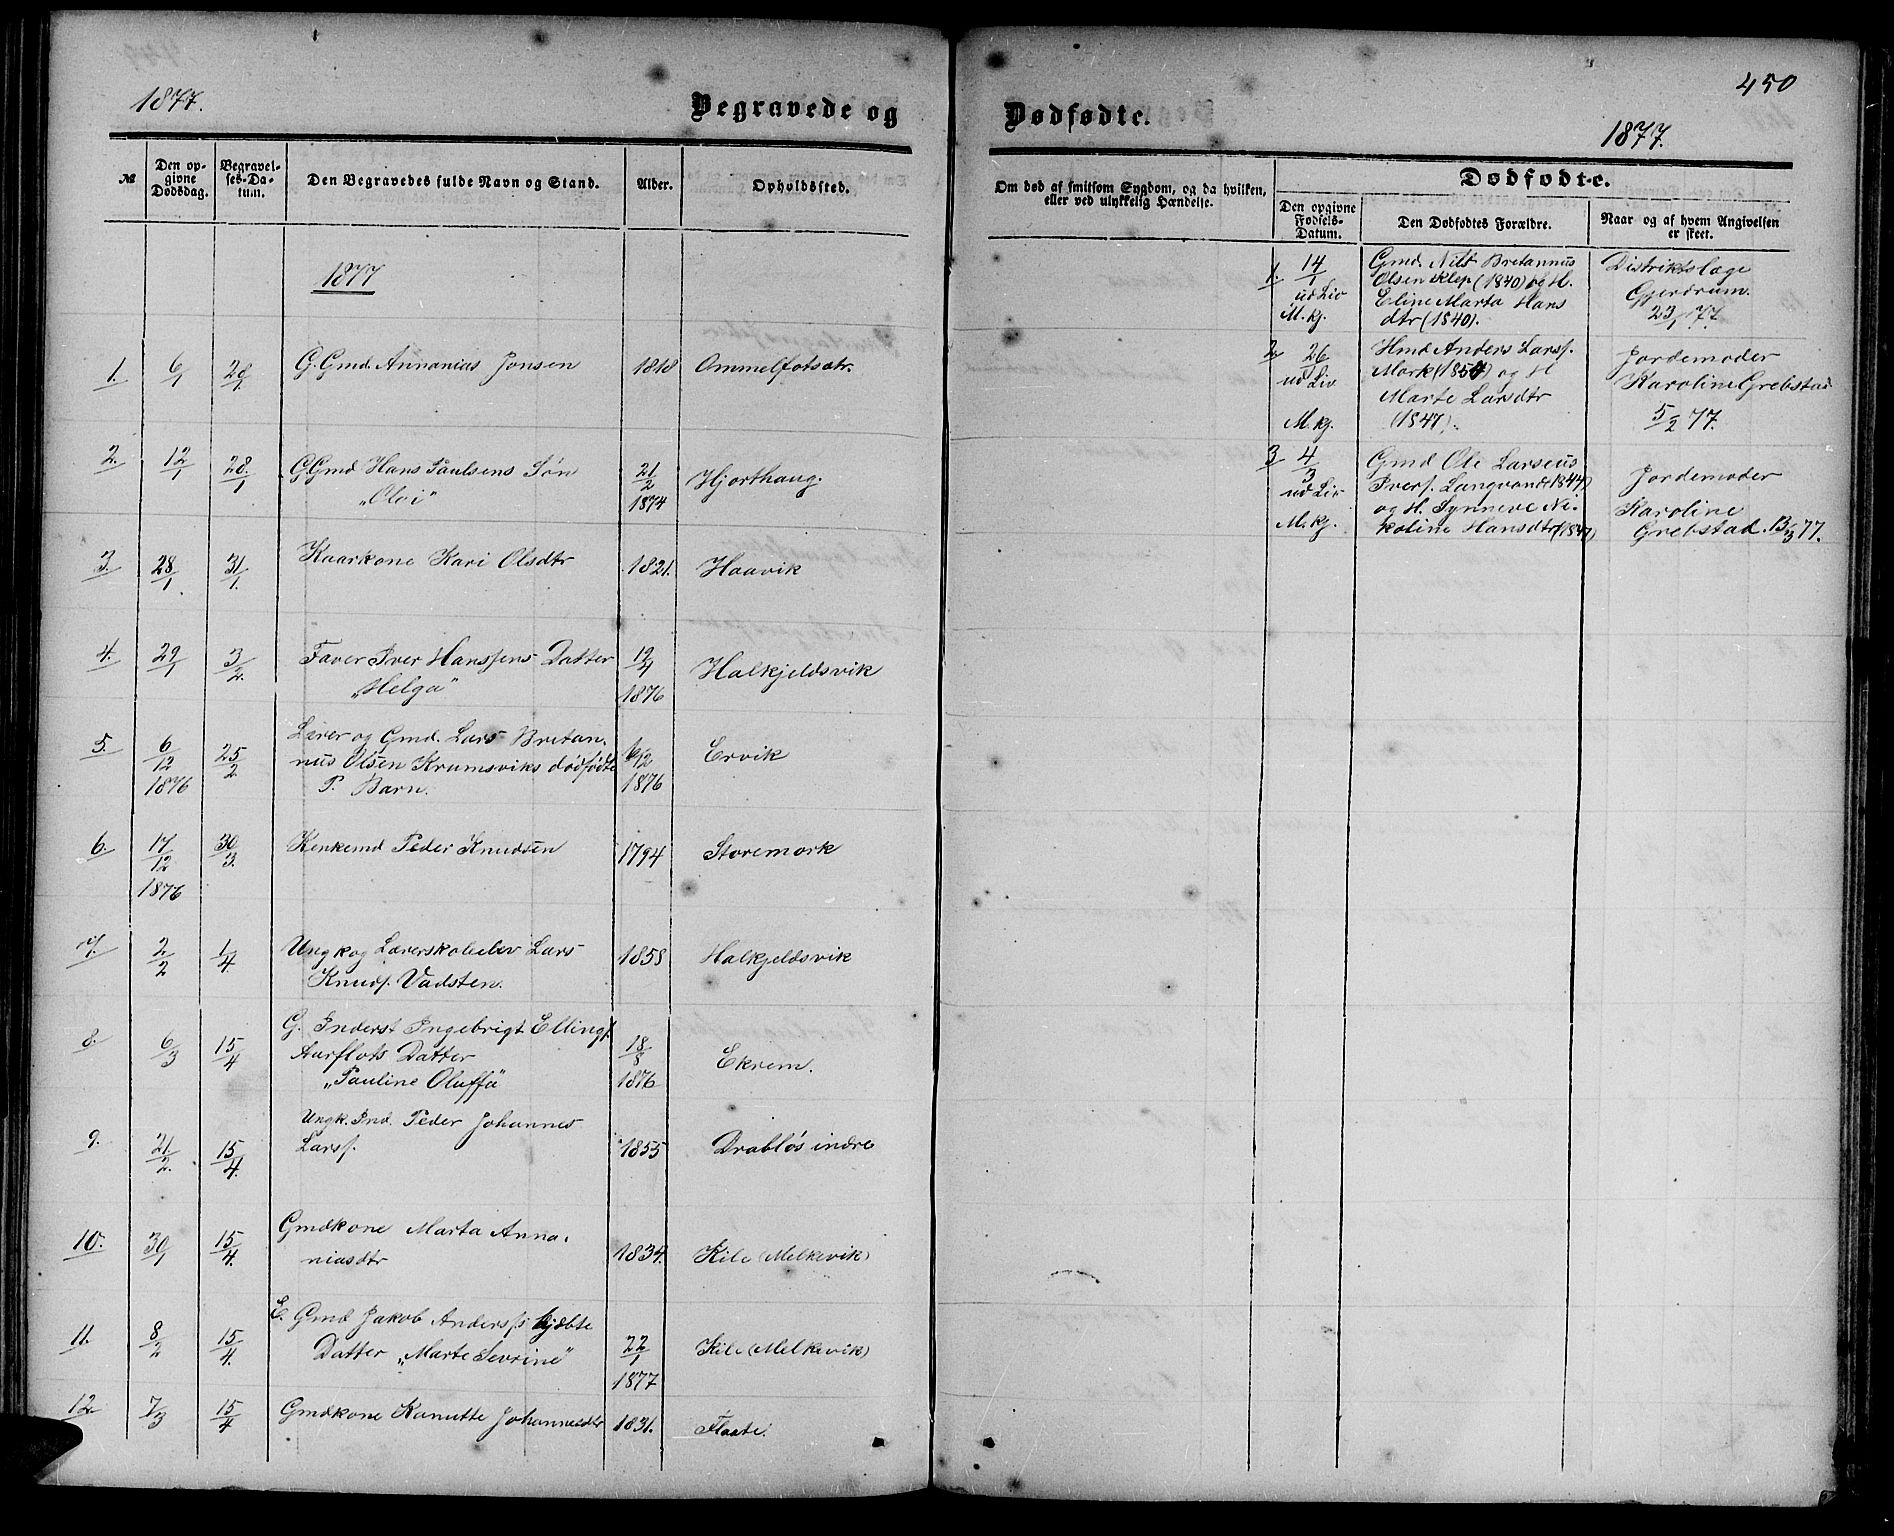 1877.
Begravede og
Dødfødte.
450
1877.
№
Den opgivne Dødsdag.
Begravelses-Datum.
Den Begravedes fulde Navn og Stand.
Alder.
Opholdssted.
1877
1. 6/1 28/1 G. Gmd. Annanias Jonsen 1818 Ammelfotsætr.
2. 12/1 28/1 G. Gmd Hans Paulsens Søn 21/2 Hjorthaug.
„Olvi” 1874
3. 28/1 31/1 Kaarkone Kari Olsdtr 1821. Haavik
4. 29/1 3/2. Faver Iver Hanssens Datter 19/4 Halkjeldsvik
„Helga” 1876
5. 6/12 25/2 Lærer og Gmd. Lars Bretan-
nus Olsen Krumsviks dødfødte 6/12 Ervik
1876 P. Barn. 1876
6. 17/12 30/3. Kenkemd Peder Knudsen 1794 Storemork
1876
7. 2/2 1/4 Ungk og Lærerskoleelev Lars 1858 Halkjeldsvik
Knuds. Vadsten.
8. 6/3 15/4 G. Inderst Ingebrigt Ellings.
Aurflots Datter 18/8 Ekrem.
„Pauline Oluffa” 1876
9. 21/2. 15/4. Ungk. Ind. Peder Johannes
Larss. 1855 Drabløs indre
10. 30/1 15/4. Gmdkone Marta Anna-
niasdtr 1834. Kile (Melkevik)
11. 8/2 15/4. E. Gmd Jakob Anderss. hjdbte
Datter „Marte Sevrine” 22/1 Kile (Melkevik)
1877
12. 7/3 15/4 Gmdkone Kanutte Johannesdtr 1831. Flaate.
Om død af smitsom Sygdom, og da hvilken,
eller ved ulykkelig Hændelse.
Dødfødte.
Den opgivne
Fødsels-
Datum.
Den Dødfødtes Forældre.
Naar og af hvem Angivelsen
er skeet.
1. 14/1 Gmd. Nils Bretannus Distriktslæge
Olsen Klep (1840) og H. Gjerdrum.
ud Liv Eline Marta Hans 23/1 77.
M. kj. dtr (1840).
2. 26/1 Hmd Anders Larss. Jordemoder
ud Liv Mork (1854) og H Karoline Grebstad
Marte Larsdtr
M. kj. (1847). 5/2 77.
3 4/3 Gmd Ole Larseus
ud Liv Ivers. Langvand (1844) Jordemoder
og H. Synneve Ni- Karoline
M. kj. koline Hansdtr (1847) Grebstad. 13/3 77.